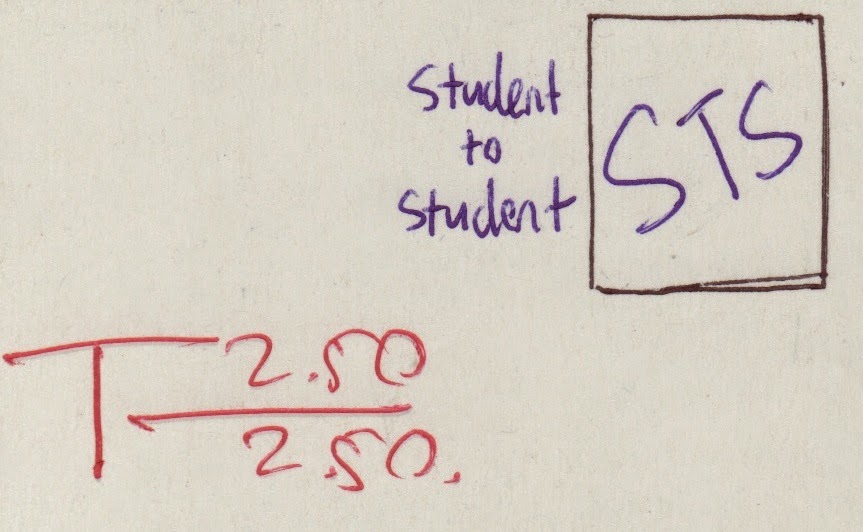 Student
to
Student
STS
T 2.50
2.50.